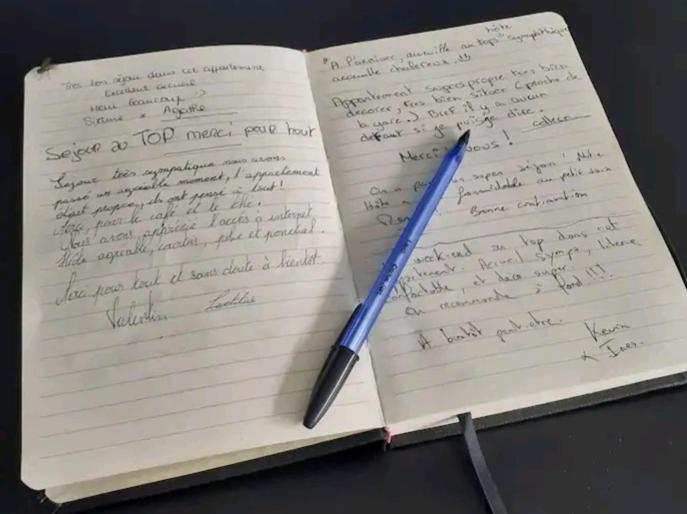 Très bon séjour dans cet appartement
Excellent accueil
Merci beaucoup :)
& Agathe
Séjour au TOP merci pour tout
Séjour très sympatique nous avons
passé un agréable moment, l'appartement
était propre, ils ont pensé à tout!
Merci pour le café et le thé.
Nous avons apprécié l'accès à internet
Hôte agréable, courtois, et ponctuel.
Merci pour tout et sans doute à bientôt.
Valentin Laetitia
hôte
accueille au top sympathique
accueille chaleureux
Appartement propre très bien
décorer, très bien situer (proche de
la gare) Bref il y a aucun
défaut si je puisse dire.
Merci à vous!
On a super séjour! Notre
Hôte formidable au petit soin
Bonne continuation
week-end au top dans cet
appartement. Accueil sympa, literie
confortable, et déco super.
On recommande à fond!!!
A bientôt peut-être.
Kevin
& Ines.